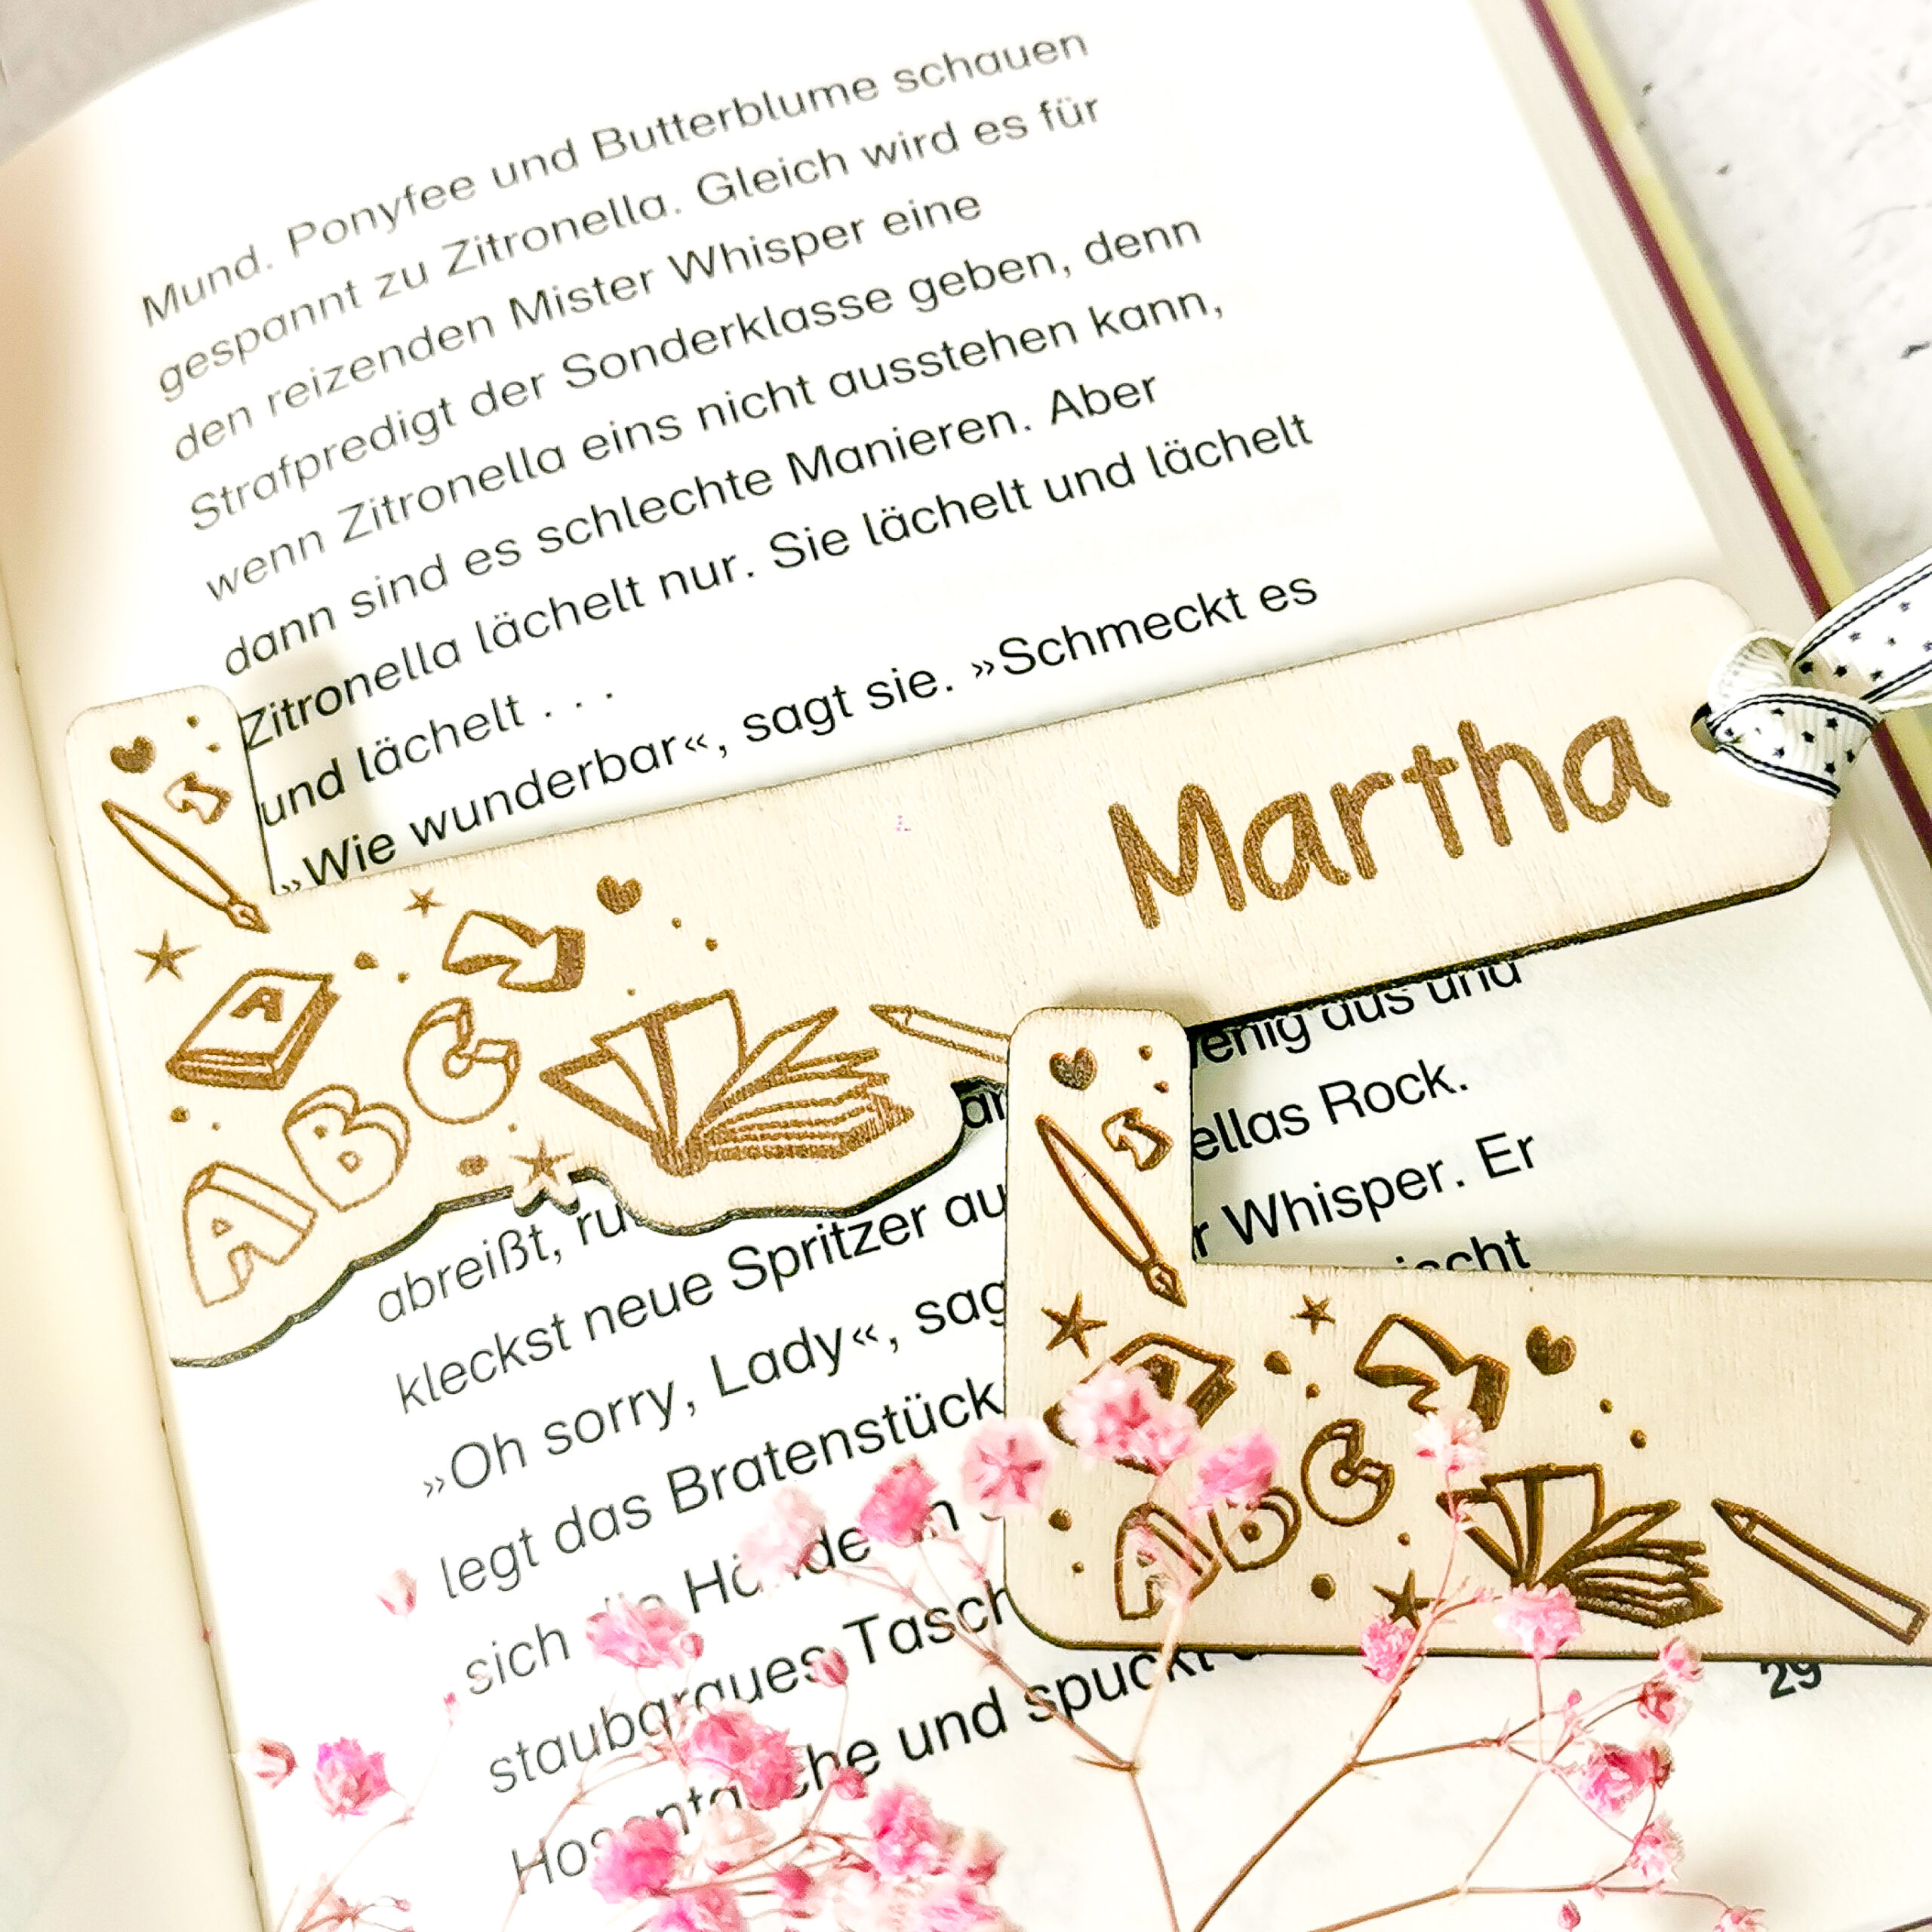 Mund. Ponyfee und Butterblume schauen
gespannt zu Zitronella. Gleich wird es für
den reizenden Mister Whisper eine
Strafpredigt der Sonderklasse geben, denn
wenn Zitronella eins nicht ausstehen kann,
dann sind es schlechte Manieren. Aber
Zitronella lächelt nur. Sie lächelt und lächelt
und lächelt . . .
»Wie wunderbar«, sagt sie. »Schmeckt es
Martha
A
A B C
aus und
Rock.
Whisper. Er
abreißt,
kleckst neue Spritzer
»Oh sorry, Lady«,
legt das Bratenstück
sich
und
A
A B C
29